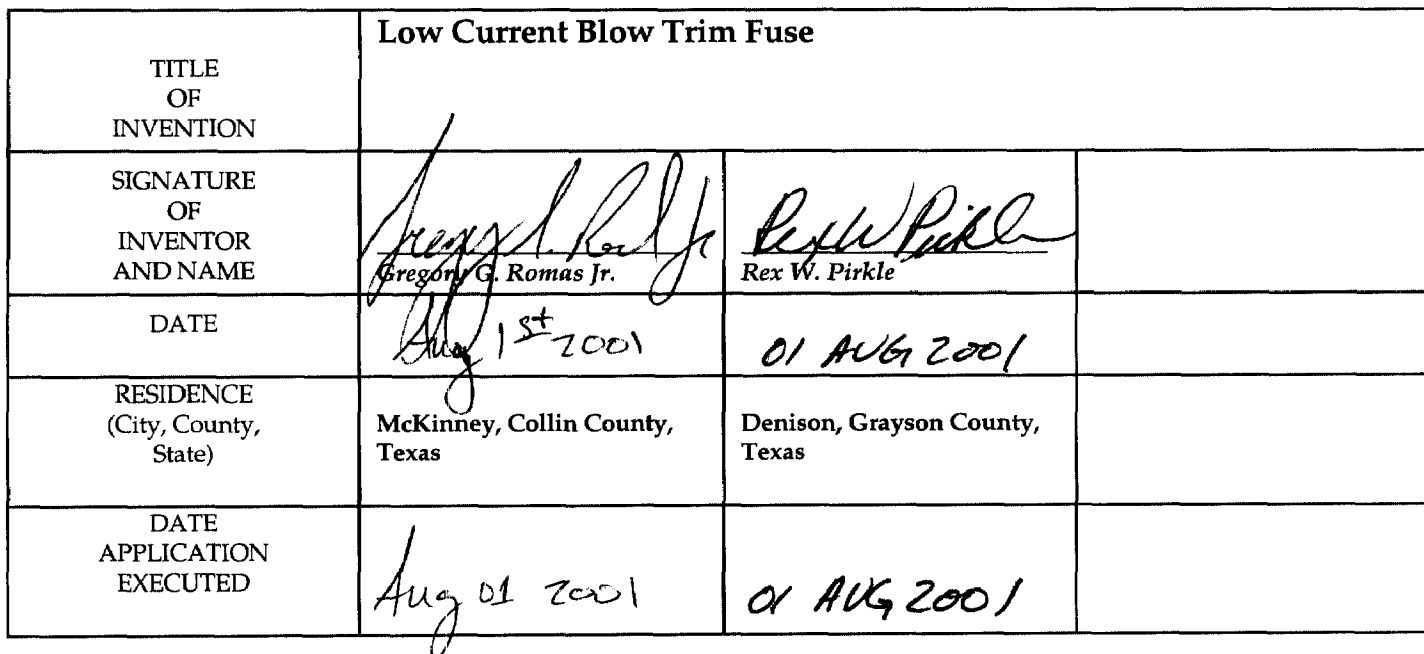 TITLE
OF
INVENTION
Low Current Blow Trim Fuse
SIGNATURE
OF
INVENTOR
AND NAME
Gregory G. Romas Jr.
Rex W Pirkle
Rex W. Pirkle
DATE
Aug 1st 2001
01 AUG 2001
RESIDENCE
(City, County,
State)
McKinney, Collin County,
Texas
Denison, Grayson County,
Texas
DATE
APPLICATION
EXECUTED
Aug 01 2001
01 AUG 2001